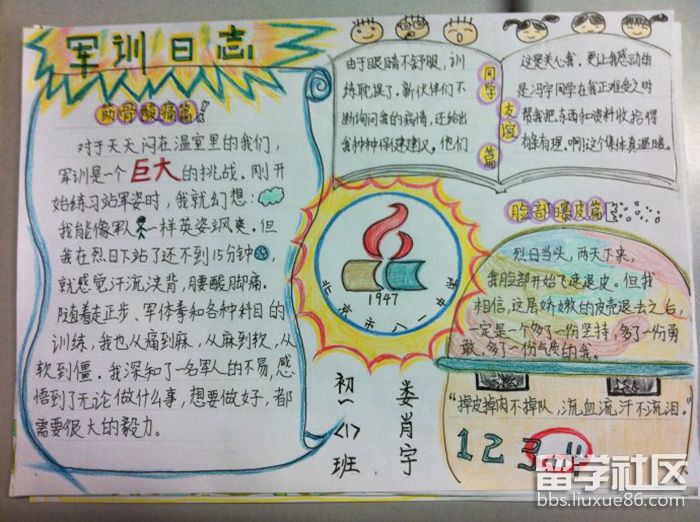 军训日志
筋骨酸痛篇!
对于天天闷在温室里的我们,
军训是一个巨大的挑战。刚开
始练习站军姿时,我就幻想:
我能像军人一样英姿飒爽。但
我在烈日下站了还不到15分钟,
就感觉汗流浃背,腰酸脚痛。
随着走正步、军体拳和各种科目的
训练,我也从痛到麻,从麻到软,从
软到僵。我深知了一名军人的不易,感
悟到了无论做什么事,想要做好,都
需要很大的毅力。
同学友谊篇
由于眼睛不舒服,训
练耽误了。新伙伴们不
断询问我的病情,还给出
我种种保健建议。他们
这里关心我。更让我感动的
是冯宇同学在我正难受之时
帮我把东西和资料收拾得
有条有理。啊!这个集体真温暖。
1947
北京市八一中学
初一<1>班
娄肖宇
脸部曝皮篇
烈日当头,两天下来,
我脸部开始飞速退皮。但我
相信,这层娇嫩的皮壳退去之后,
一定是一个多了一份坚持,多了一份勇
敢,多了一份气质的我。
“掉皮掉肉不掉队,流血流汗不流泪。”
1 2 3 4
留学社区
bbs.liuxue86.com